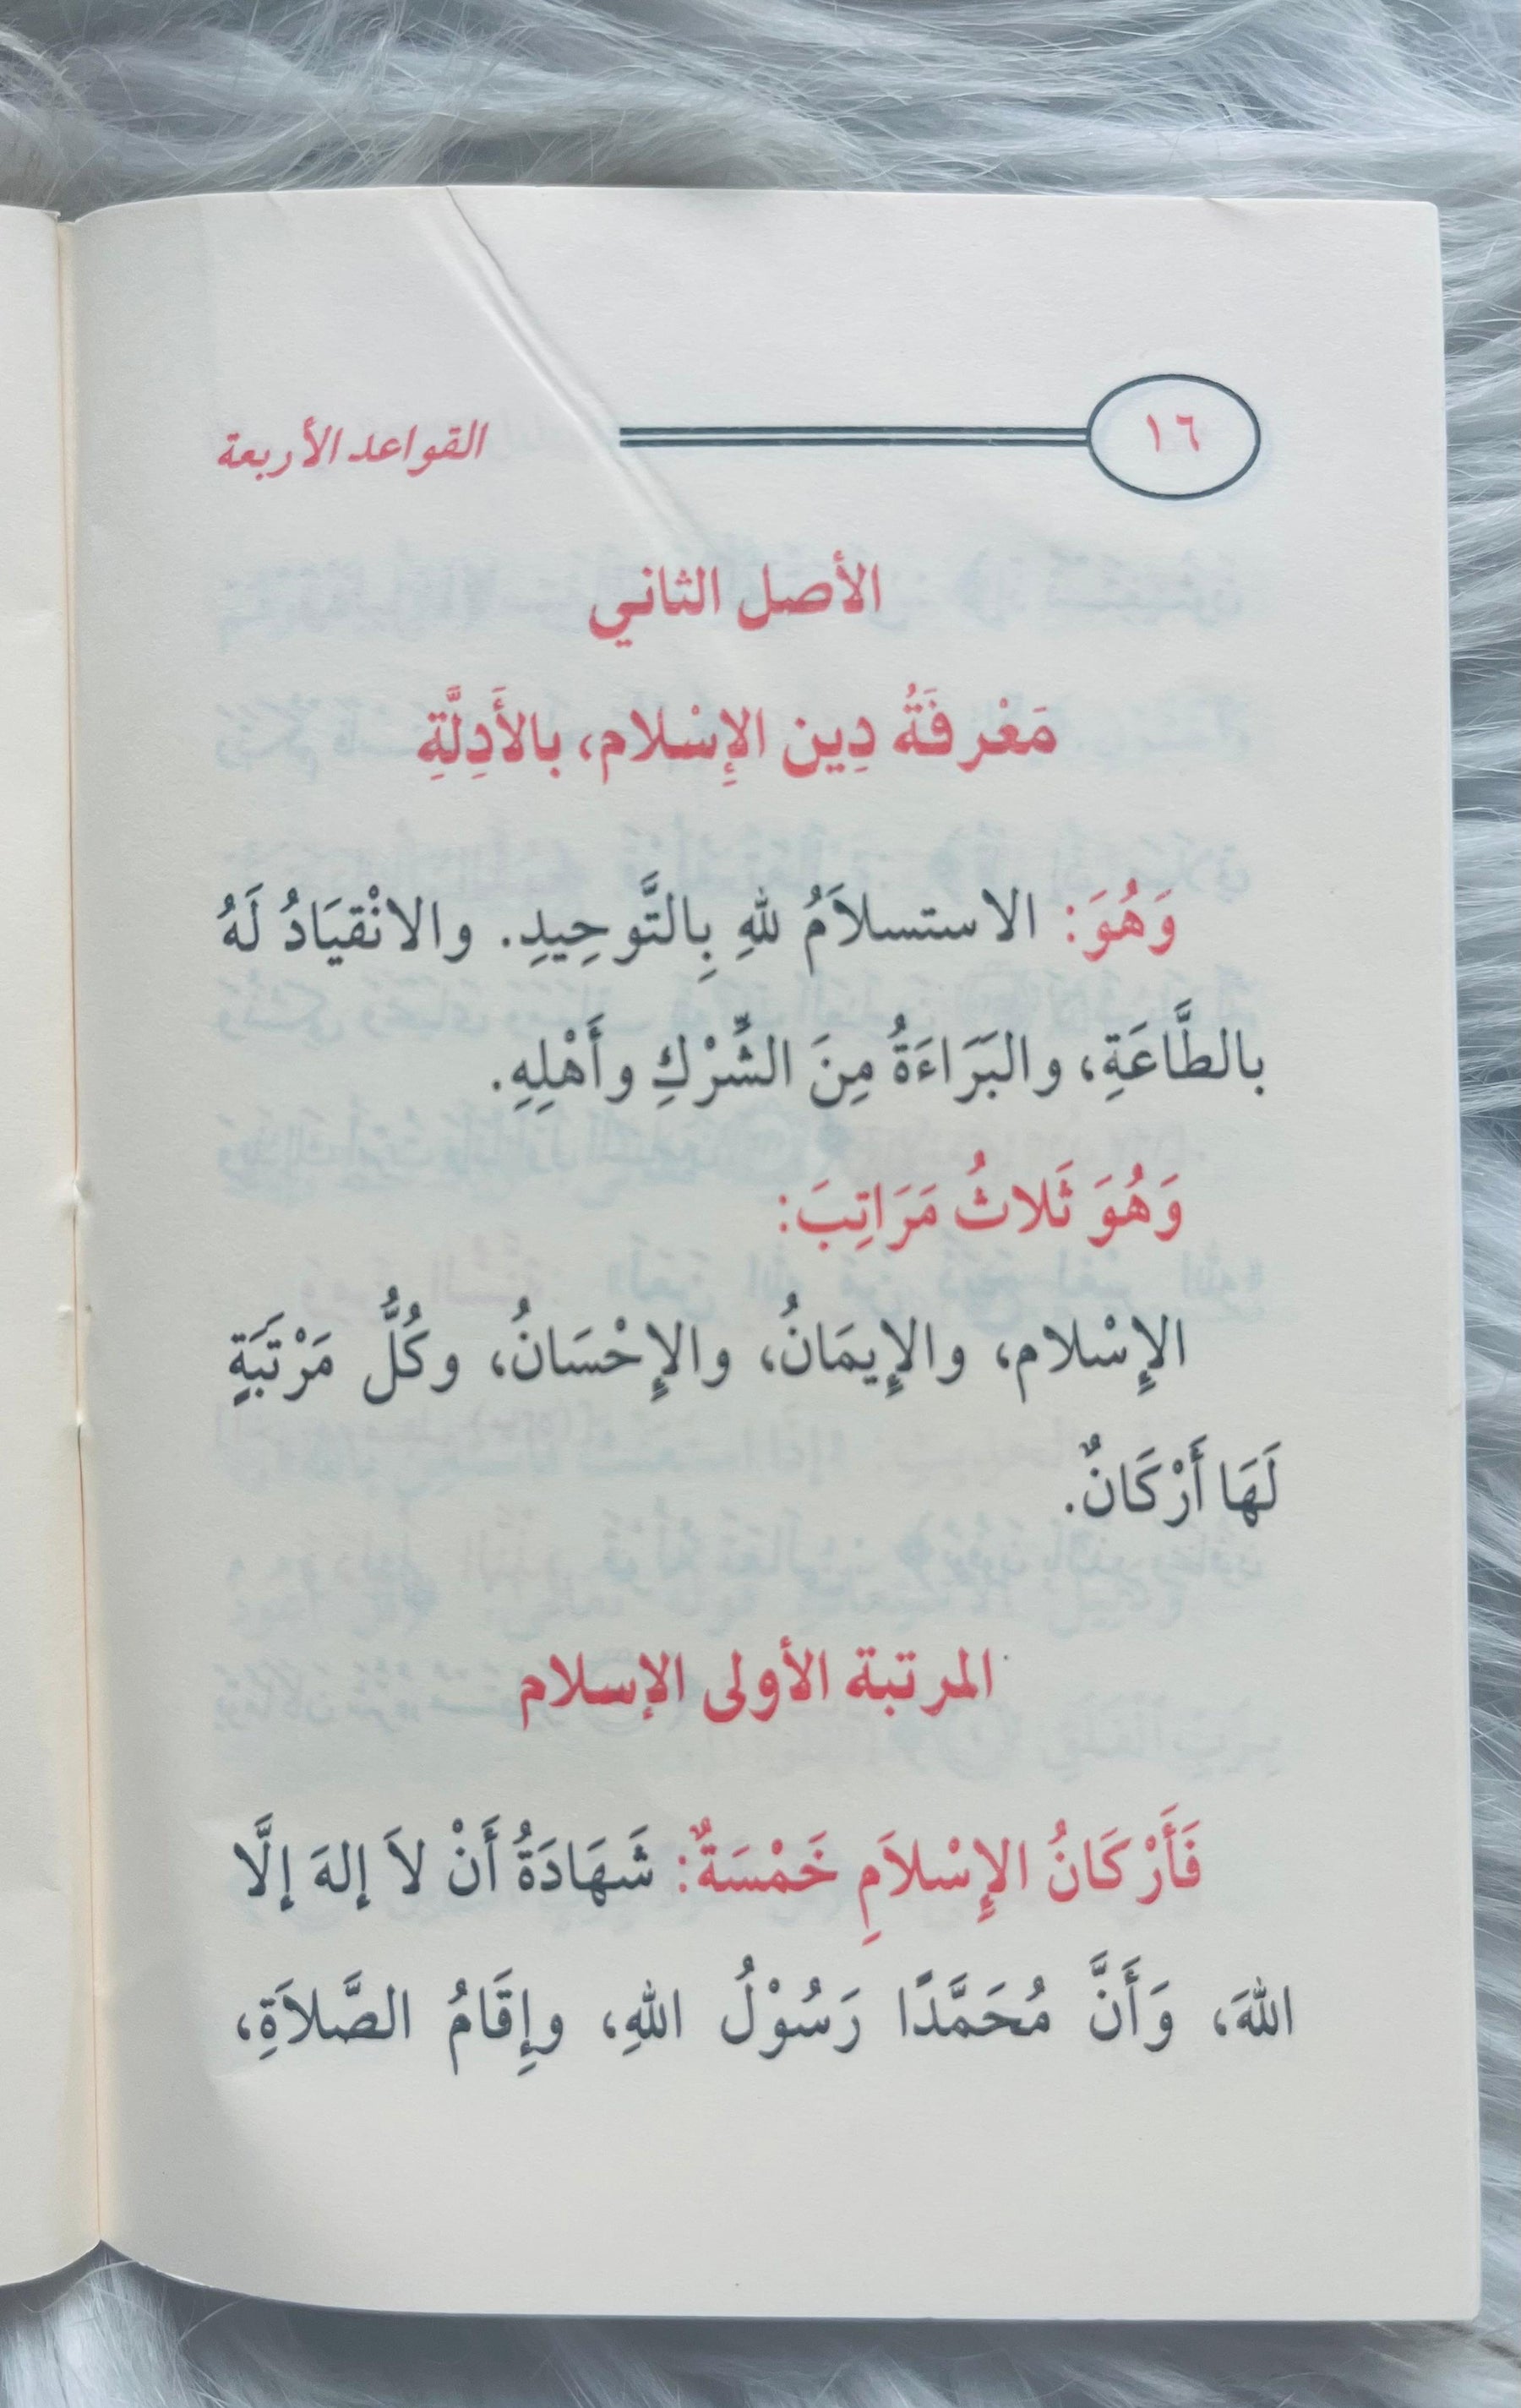 ١٦ القواعد الأربعة
الأصل الثاني
مَعْرِفَةُ دِين الإِسْلام، بالأَدِلَّةِ
وَهُوَ: الاستسلاَمُ للهِ بِالتَّوحِيدِ. والانْقيَادُ لَهُ
بالطَّاعَةِ، والبَرَاءَةُ مِنَ الشِّرْكِ وأَهْلِهِ.
وَهُوَ ثَلاثُ مَرَاتِبَ:
الإِسْلام، والإِيمَانُ، والإِحْسَانُ، وكُلُّ مَرْتَبَةٍ
لَهَا أَرْكَانٌ.
المرتبة الأولى الإسلام
فَأَرْكَانُ الإِسْلاَمِ خَمْسَةٌ: شَهَادَةُ أَنْ لاَ إلهَ إلَّا
اللهَ، وَأَنَّ مُحَمَّدًا رَسُوْلُ اللهِ، وإِقَامُ الصَّلاَةِ،